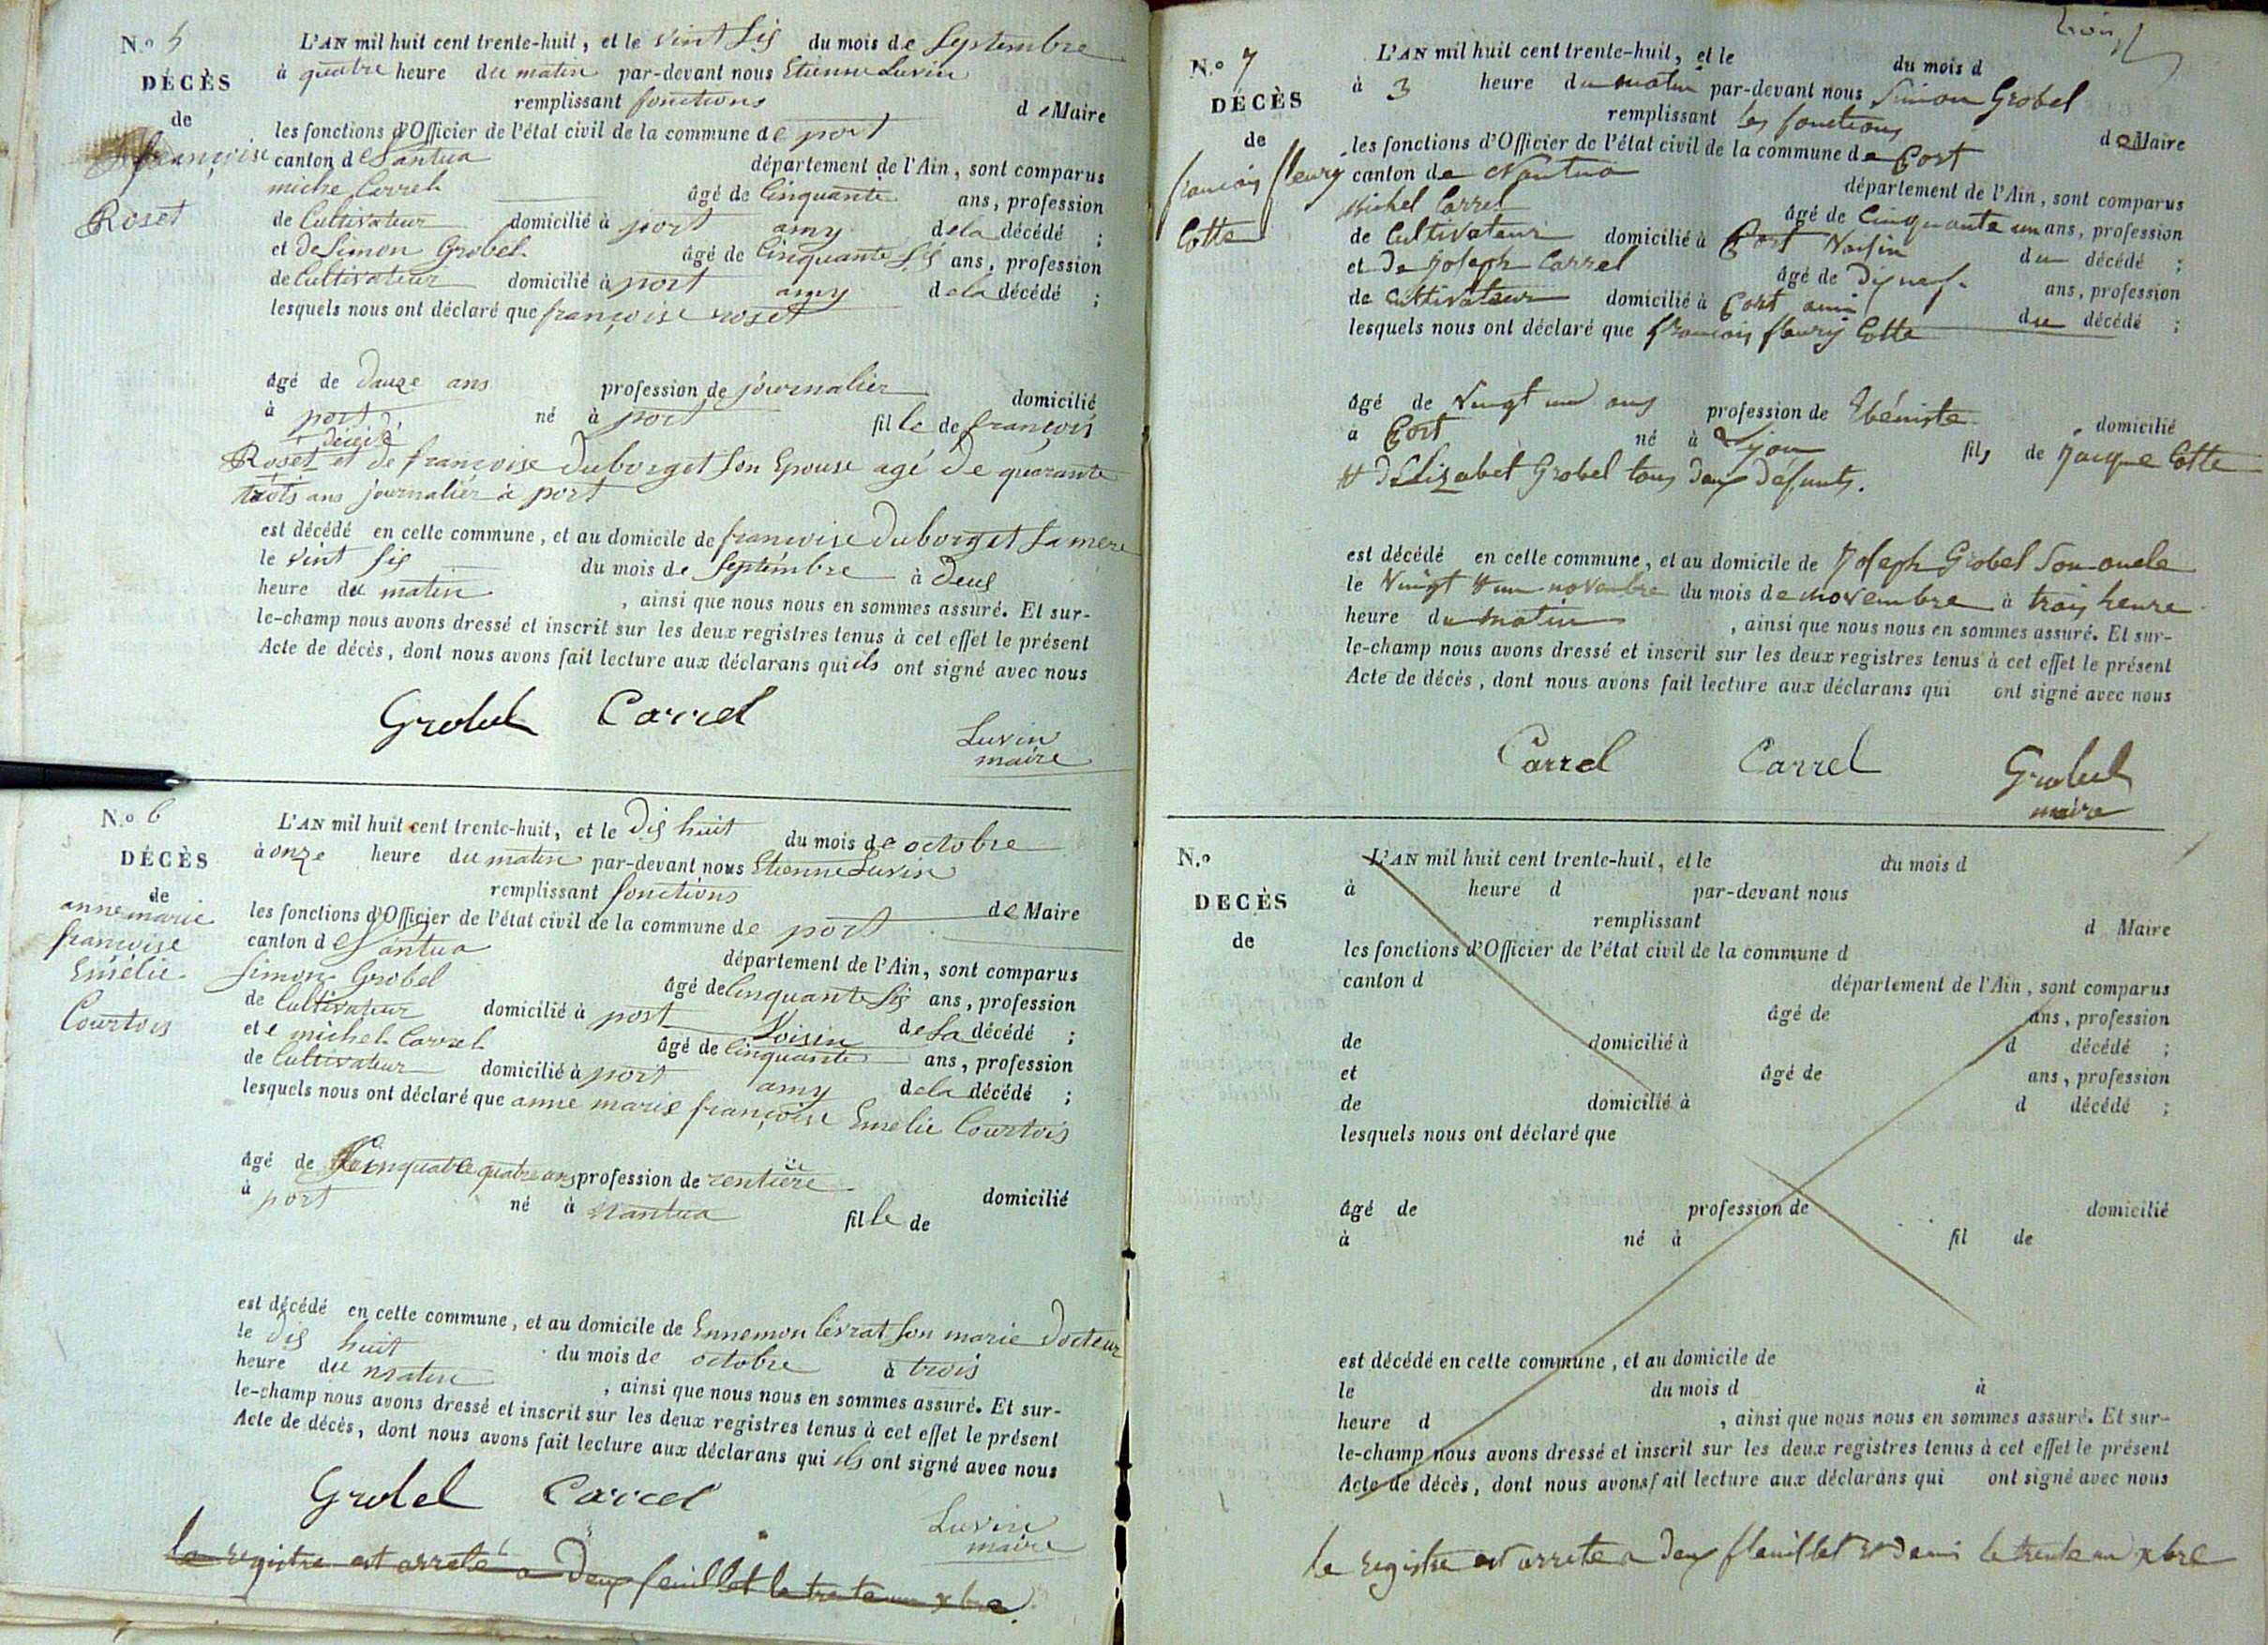 N.o 5
DÉCÈS
de
françoise
Roset
L'AN mil huit cent trente-huit, et le vint sis du mois de Septembre
à quatre heure du matin par-devant nous Etienne Luvin
remplissant fonctions de Maire
les fonctions d'Officier de l'état civil de la commune de port
canton de Nantua département de l'Ain, sont comparus
miche Carrel âgé de Cinquante ans, profession
de Cultivateur domicilié à port amy de la décédé ;
et de Simon Grobel âgé de Cinquante sis ans, profession
de Cultivateur domicilié à port amy de la décédé ;
lesquels nous ont déclaré que françoise roset
âgé de dauze ans profession de journalier domicilié
à port né à port fille de françois
décédé
Roset et de françoise duborget son Epouse agé de quarante
trois ans journalier à port
est décédé en cette commune, et au domicile de françoise duborget sa mere
le vint sis du mois de Septembre à deus
heure du matin, ainsi que nous nous en sommes assuré. Et sur-
le-champ nous avons dressé et inscrit sur les deux registres tenus à cet effet le présent
Acte de décès, dont nous avons fait lecture aux déclarans qui ils ont signé avec nous
Grobel Carrel
Luvin
maire
N.o 6
DÉCÈS
de
anne marie
françoise
Emélie
Courtois
L'AN mil huit cent trente-huit, et le dis huit du mois de octobre
à onze heure du matin par-devant nous Etienne Luvin
remplissant fonctions de Maire
les fonctions d'Officier de l'état civil de la commune de port
canton de Nantua département de l'Ain, sont comparus
Simon Grobel âgé de Cinquante sis ans, profession
de Cultivateur domicilié à port Voisin de la décédé ;
et e michel Carrel âgé de Cinquante ans, profession
de Cultivateur domicilié à port amy de la décédé ;
lesquels nous ont déclaré que anne marie françoise Emelie Courtois
âgé de Cinquate quatre ans profession de rentière domicilié
à port né à nantua fille de
est décédé en cette commune, et au domicile de Ennemon levrat son marie docteur
le dis huit du mois de octobre à trois
heure du matin, ainsi que nous nous en sommes assuré. Et sur-
le-champ nous avons dressé et inscrit sur les deux registres tenus à cet effet le présent
Acte de décès, dont nous avons fait lecture aux déclarans qui ils ont signé avec nous
Grobel Carrel
Luvin
maire
le registre est arreté a deux feuillet le trente un xbre
N.o 7
DÉCÈS
de
francois fleury
Cotte
L'AN mil huit cent trente-huit, et le du mois d
à 3 heure du matin par-devant nous Simon Grobel
remplissant les fonctions de Maire
les fonctions d'Officier de l'état civil de la commune de Port
canton de Nantua département de l'Ain, sont comparus
Michel Carrel âgé de Cinquante un ans, profession
de Cultivateur domicilié à Port Voisin du décédé ;
et de Joseph Carrel âgé de dix neuf ans, profession
de Cultivateur domicilié à Port ami du décédé ;
lesquels nous ont déclaré que francois fleury Cotte
âgé de vingt un ans profession de Ebéniste domicilié
à Port né à Lyon fils de Jacque Cotte
et d'Elizabet Grobel tous deux défunts.
est décédé en cette commune, et au domicile de Joseph Grobel son oncle
le vingt et un novembre du mois de novembre à trois heure
heure du matin, ainsi que nous nous en sommes assuré. Et sur-
le-champ nous avons dressé et inscrit sur les deux registres tenus à cet effet le présent
Acte de décès, dont nous avons fait lecture aux déclarans qui ont signé avec nous
Carrel Carrel Grobel
maire
N.o
DECÈS
de
L'AN mil huit cent trente-huit, et le du mois d
à heure d par-devant nous
remplissant d Maire
les fonctions d'Officier de l'état civil de la commune d
canton d département de l'Ain, sont comparus
âgé de ans, profession
de domicilié à d décédé ;
et âgé de ans, profession
de domicilié à d décédé ;
lesquels nous ont déclaré que
âgé de profession de domicilié
à né à fil de
est décédé en cette commune, et au domicile de
le du mois d à
heure d , ainsi que nous nous en sommes assuré. Et sur-
le-champ nous avons dressé et inscrit sur les deux registres tenus à cet effet le présent
Acte de décès, dont nous avons fait lecture aux déclarans qui ont signé avec nous
le registre est arrete a deux fleuillet et demi le trente un xbre